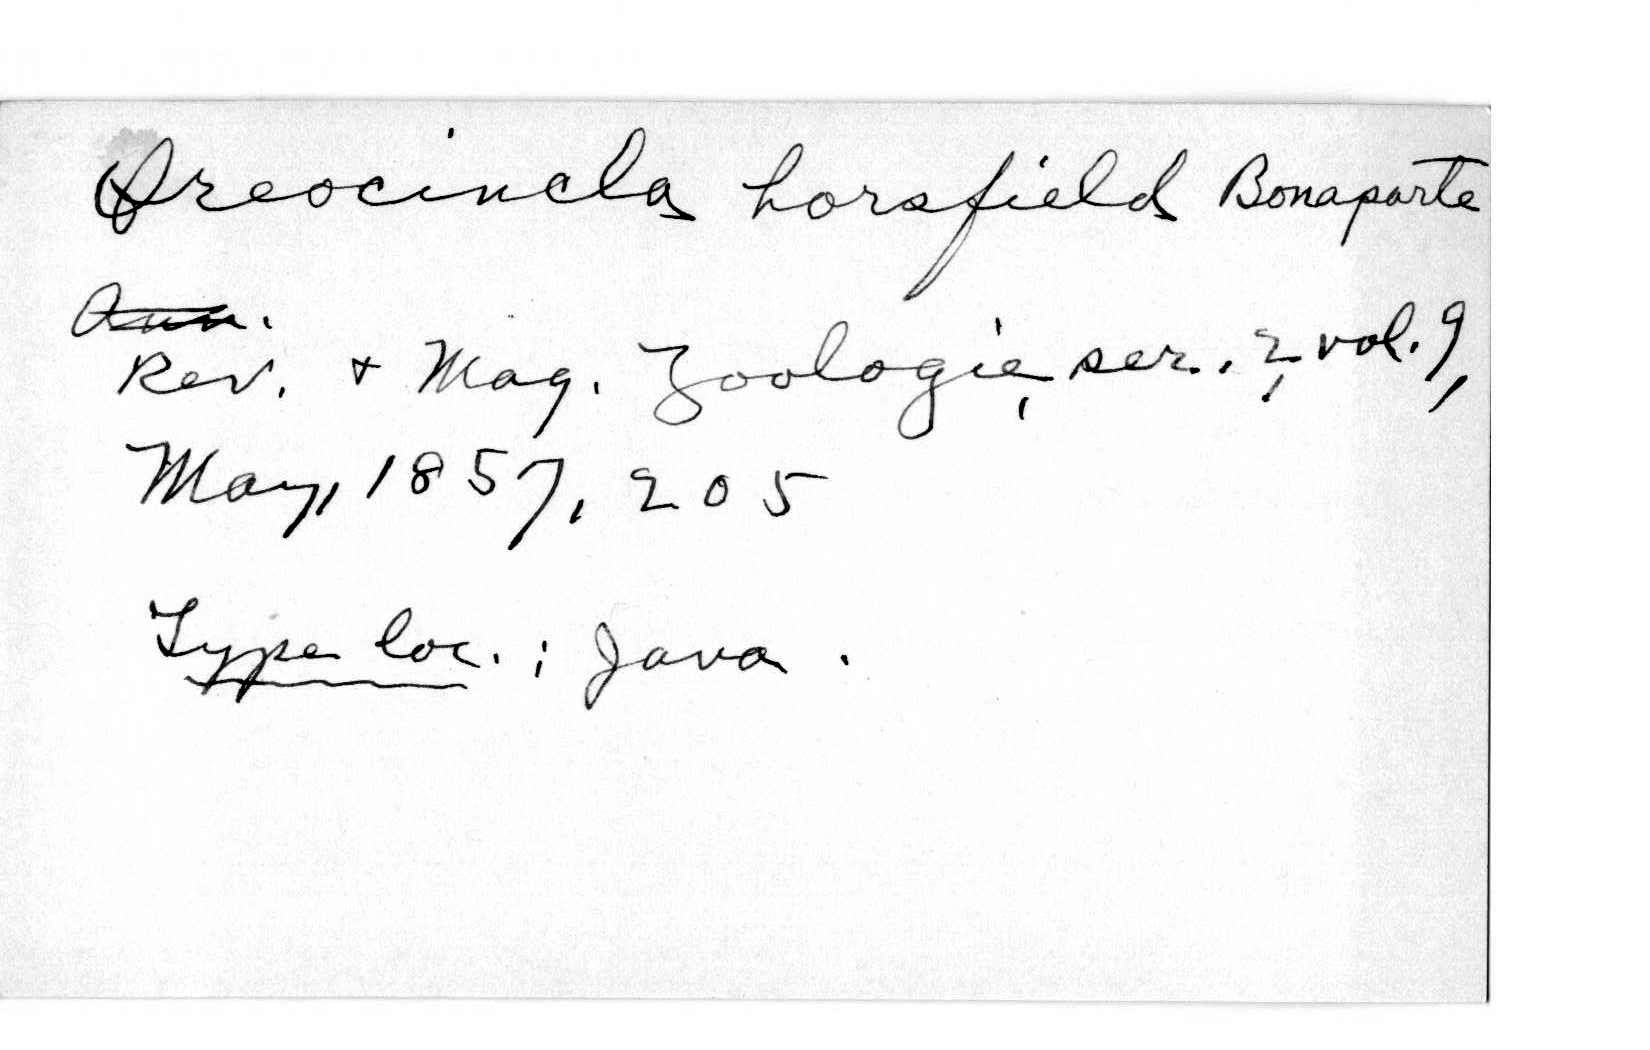 Oreocincla horsfield Bonaparte
Ann.
Rev. + Mag. Zoologie, ser. 2, vol. 9,
May, 1857, 205
Type loc. : Java .